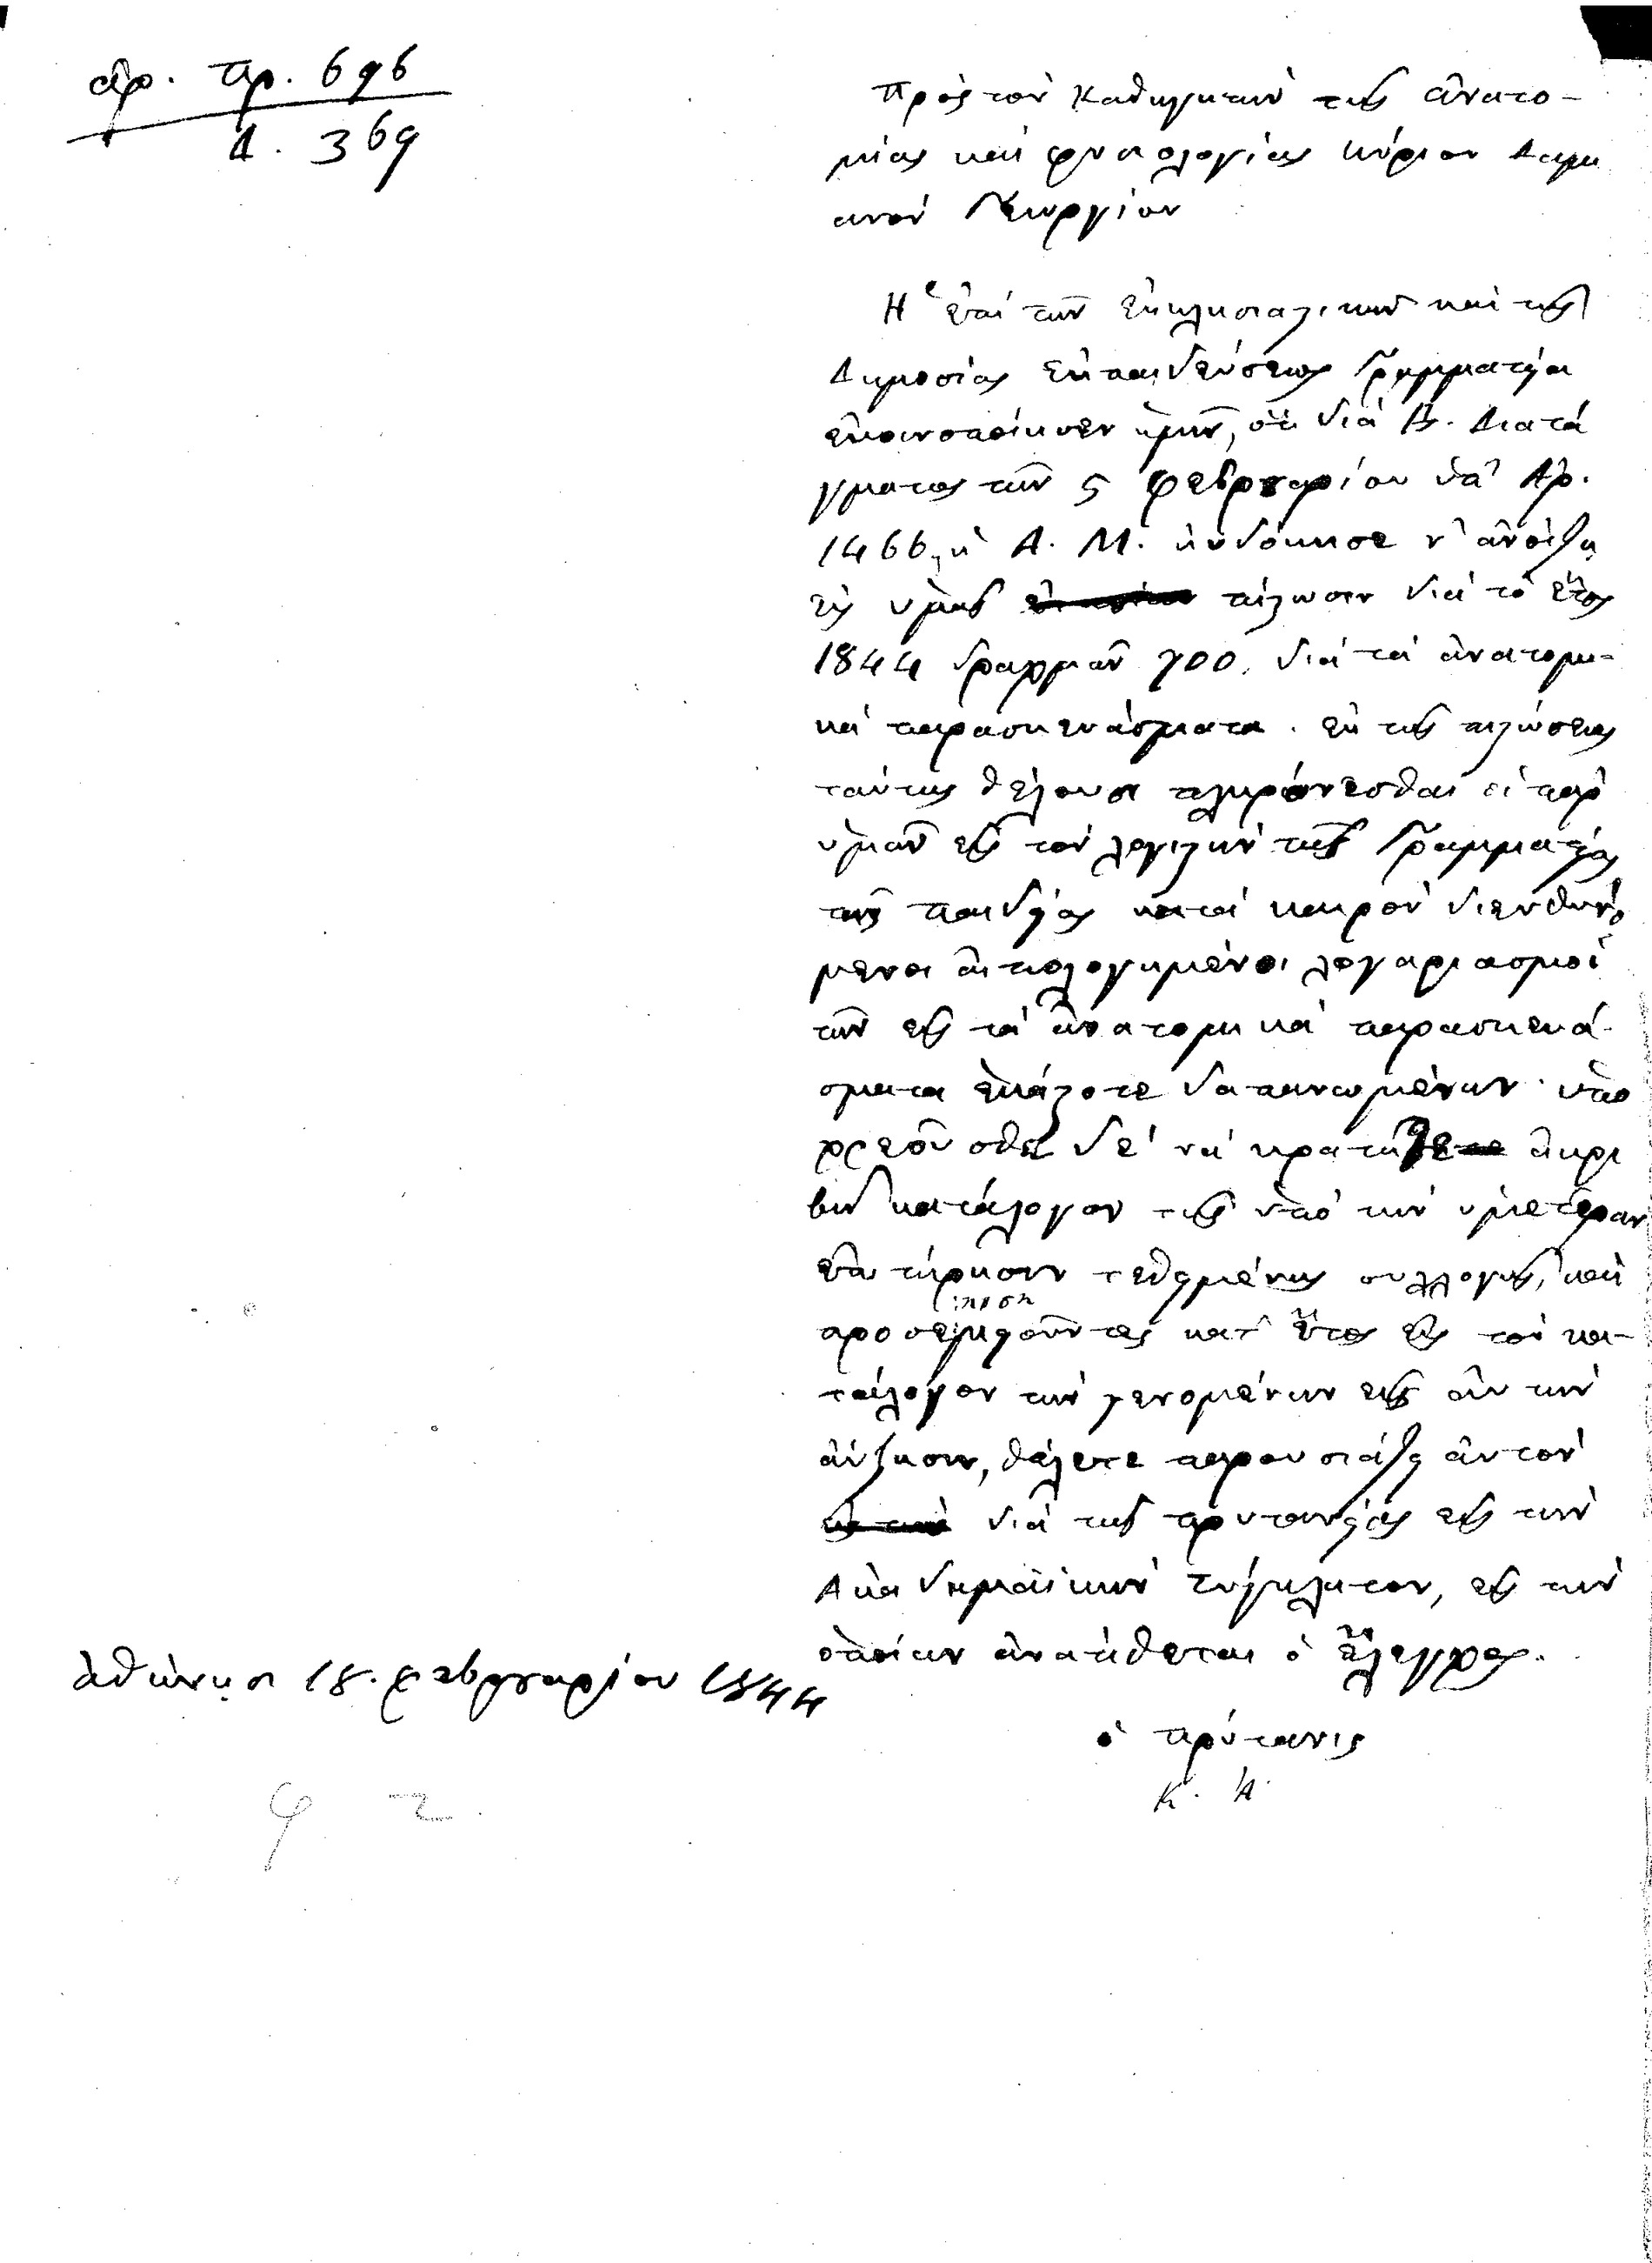 ἀρ. πρ. 696
Δ. 369
Πρὸς τὸν Καθηγητὴν τῆς ἀνατο-
μίας καὶ φυσιολογίας κύριον Δαμι
ανὸν Γεωργίου
Ἡ ἐπὶ τῶν ἐκκλησιαστικῶν καὶ τῆς
Δημοσίας ἐκπαιδεύσεως Γραμματεία
ἐκοινοποίησεν ἡμῖν, ὅτι διὰ Β. Διατά
γματος τῶν 5 Φεβρουαρίου ὑπ' Ἀρ.
1466, ἡ Α. Μ. ηὐδόκησε ν' ἀνοίξῃ
εἰς ὑμᾶς πίστωσιν διὰ τὸ ἔτος
1844 δραχμῶν 700. διὰ τὰ ἀνατομι-
κὰ παρασκευάσματα. ἐκ τῆς πιστώσεως
ταύτης θέλουσι πληρόνεσθαι οἱ παρ'
ὑμῶν εἰς τὸν λογιστὴν τῆς Γραμματείας
τῆς παιδείας κατὰ καιρὸν διευθυνό
μενοι αἰτιολογημένοι λογαριασμοὶ
τῶν εἰς τὰ ἀνατομικὰ παρασκευά-
σματα ἑκάστοτε δαπανωμένων· ὑπο
χρεοῦσθε δὲ νὰ κρατῆτε ἀκρι
βῆ κατάλογον τῆς ὑπὸ τὴν ὑμετέραν
ἐπιτήρησιν τεθειμένης συλλογῆς, καὶ
προσεπιφοροῦντες κατ' ἔτος εἰς τὸν κα-
τάλογον τὴν γενομένην εἰς αὐτὴν
αὔξησιν, θέλετε παρουσιάζει αὐτὸν
διὰ τῆς πρυτανείας εἰς τὴν
Ἀκαδημαϊκὴν Σύγκλητον, εἰς τὴν
ὁποίαν ἀνατίθεται ὁ ἔλεγχος.
ἀθήνησι 18. φεβρουαρίου 1844
ὁ πρύτανις
Κ. Ἀ.